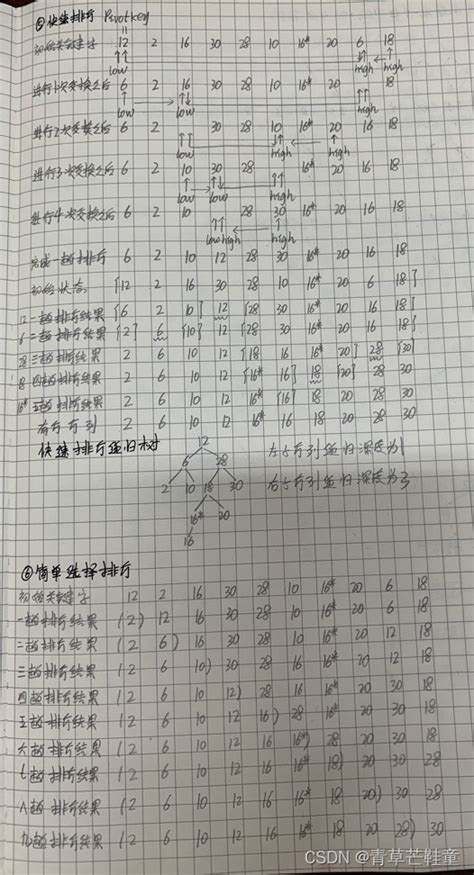 ⑤快速排序 Pivotkey
初始关键字 12 2 16 30 28 10 16* 20 6 18
low high
进行1次交换之后 6 2 16 30 28 10 16* 20 18
low low high
进行2次交换之后 6 2 30 28 10 16* 20 16 18
low high high
进行3次交换之后 6 2 10 30 28 16* 20 16 18
low low high
进行4次交换之后 6 2 10 28 30 16* 20 16 18
low high high
完成一趟排序 6 2 10 12 28 30 16* 20 16 18
初始状态 {12 2 16 30 28 10 16* 20 6 18}
12 一趟排序结果 {6 2 10} 12 {28 30 16* 20 16 18}
6 二趟排序结果 {2} 6 {10} 12 {28 30 16* 20 16 18}
28 三趟排序结果 2 6 10 12 {18 16 16* 20} 28 {30}
18 四趟排序结果 2 6 10 12 {16* 16} 18 {20} 28 30
16* 五趟排序结果 2 6 10 12 16 {16*} 18 20 28 30
有序序列 2 6 10 12 16* 16 18 20 28 30
快速排序递归树 12
6 28 左子序列递归深度为1
2 10 18 30 右子序列递归深度为3
16* 20
16
⑥简单选择排序
初始关键字 12 2 16 30 28 10 16* 20 6 18
一趟排序结果 (2) 12 16 30 28 10 16* 20 6 18
二趟排序结果 (2 6) 16 30 28 10 16* 20 12 18
三趟排序结果 (2 6 10) 30 28 16 16* 20 12 18
四趟排序结果 (2 6 10 12) 28 16 16* 20 30 18
五趟排序结果 (2 6 10 12 16) 28 16* 20 30 18
六趟排序结果 (2 6 10 12 16 16*) 28 20 30 18
七趟排序结果 (2 6 10 12 16 16* 18) 20 30 28
八趟排序结果 (2 6 10 12 16 16* 18 20) 30 28
九趟排序结果 (2 6 10 12 16 16* 18 20 28) 30
CSDN @青草芒鞋童